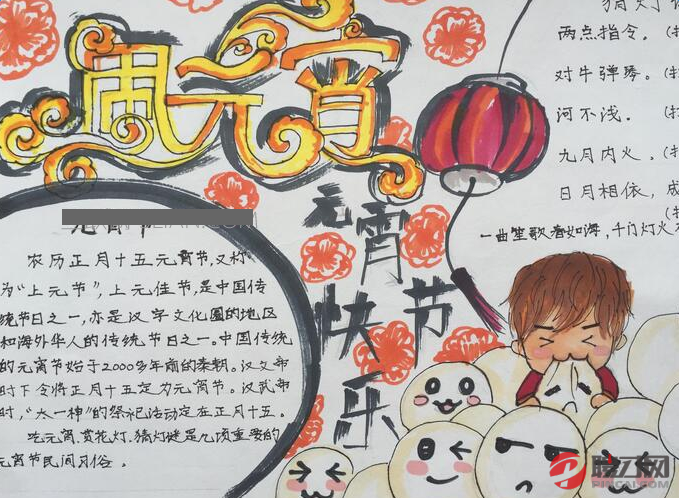 闹元宵
元宵节
快乐
农历正月十五元宵节，又称
为“上元节”，上元佳节，是中国传
统节日之一，亦是汉字文化圈的地区
和海外华人的传统节日之一。中国传统
的元宵节始于2000多年前的秦朝。汉文帝
时下令将正月十五定为元宵节。汉武帝
时，“太一神”的祭祀活动定在正月十五。
吃元宵、赏花灯、猜灯谜是几项重要的
元宵节民间习俗。
猜灯
两点指令。（打
对牛弹琴。（打
河不浅。（打
九月内火。（打
日月相依，成
（打
一曲笙歌春如海，千门灯火
聘才网
PINCAI.COM